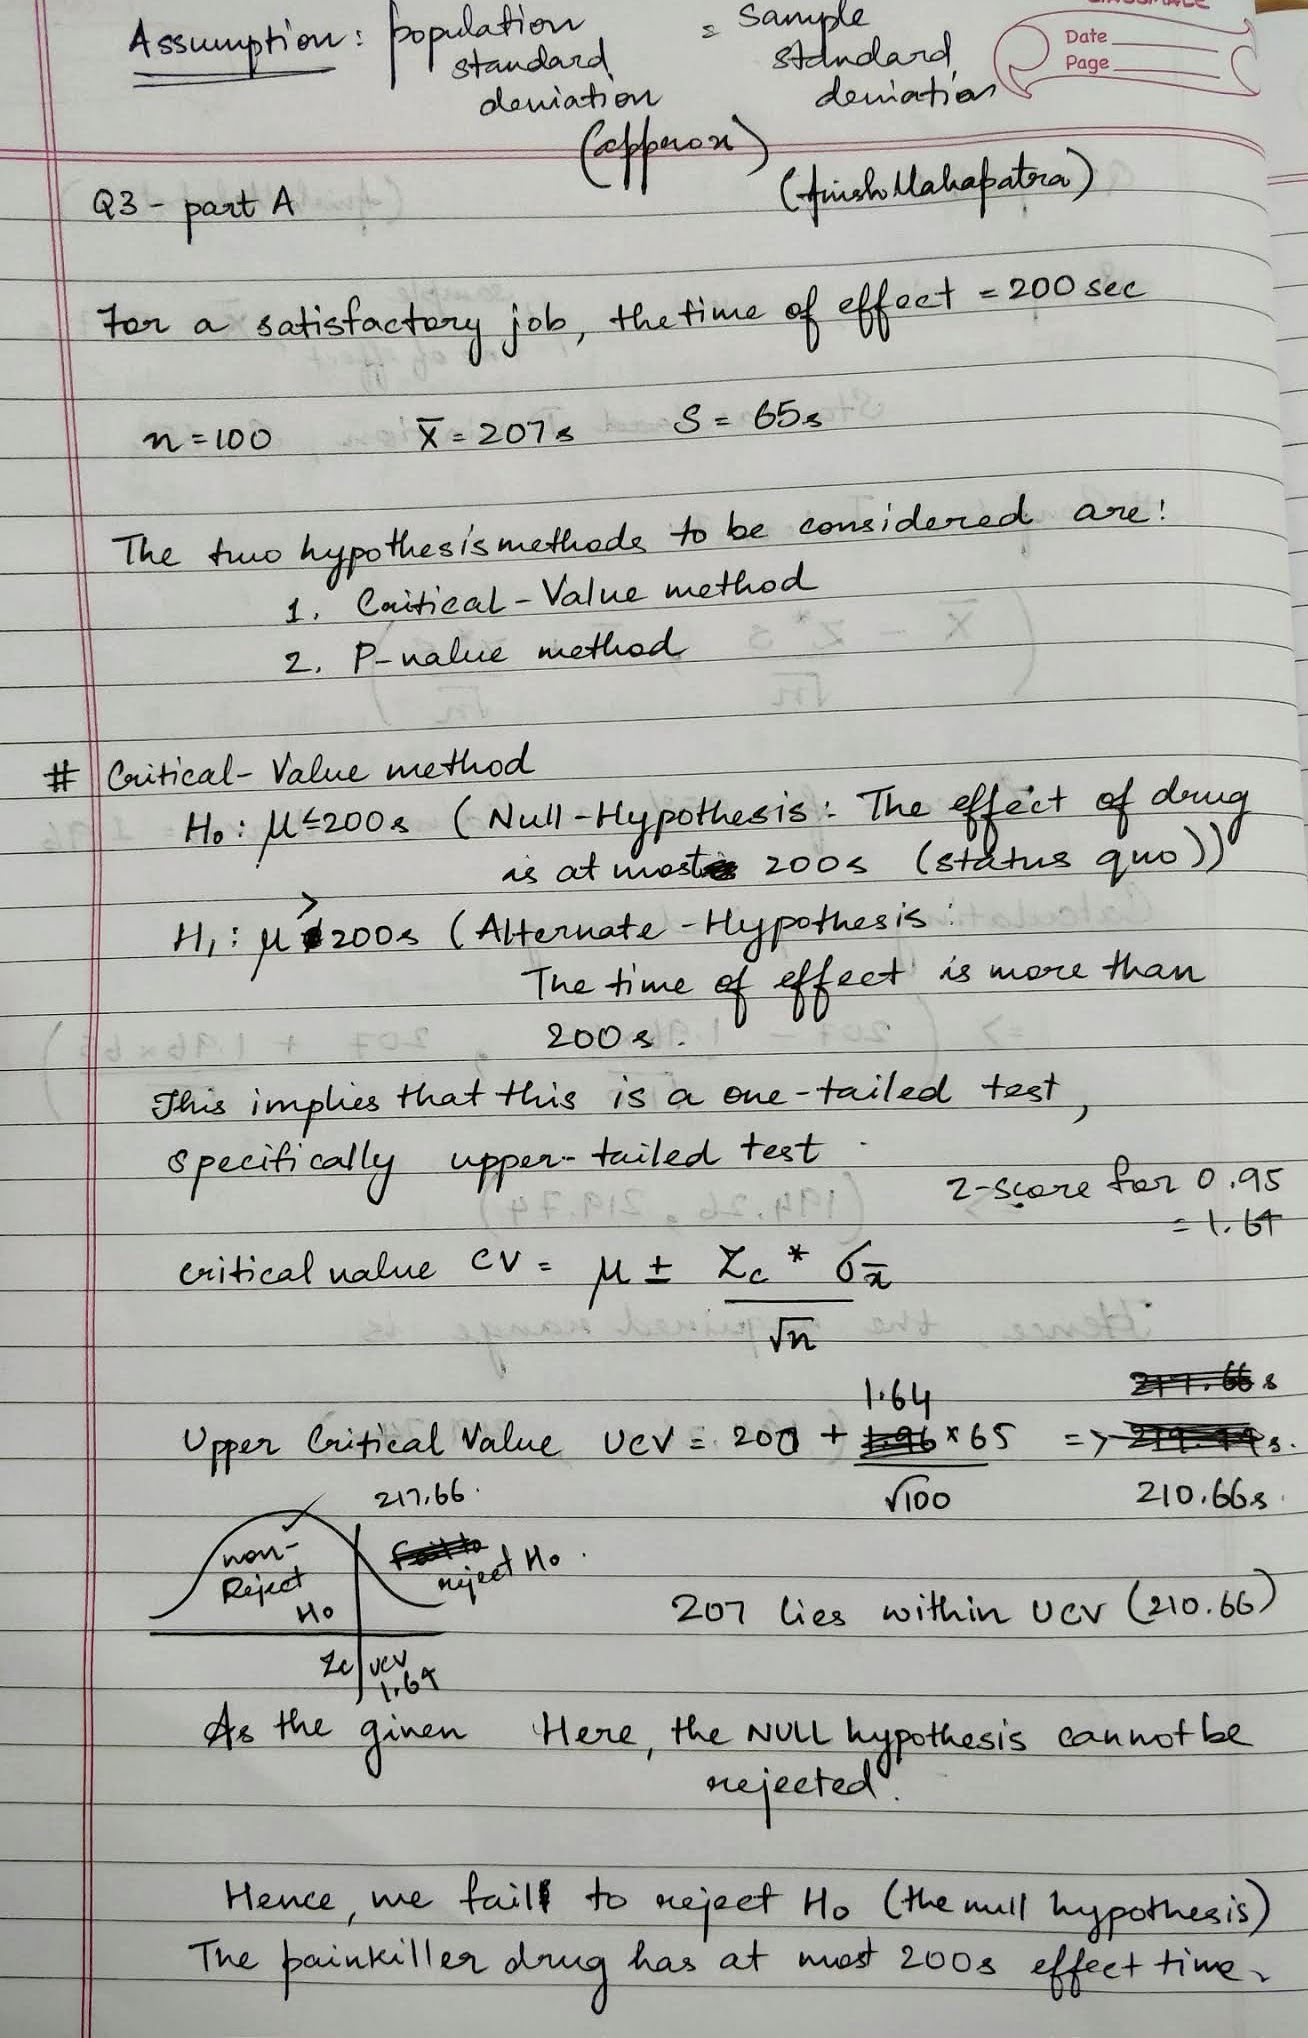 Assumption: population = sample
standard standard
deviation deviation
(approx)
Date
Page
Q3 - part A
For a satisfactory job, the time of effect = 200 sec
n = 100 x̄ = 207s S = 65s
The two hypothesis methods to be considered are:
1. Critical-Value method
2. P-value method
# Critical-Value method
H₀: μ ≤ 200s (Null-Hypothesis: The effect of drug
is at most 200s (status quo))
H₁: μ > 200s (Alternate-Hypothesis:
The time of effect is more than
200s.
This implies that this is a one-tailed test,
specifically upper-tailed test.
Z-score for 0.95
= 1.64
critical value CV = μ ± Zc * σx̄
√n
1.64
Upper Critical Value UCV = 200 + × 65 =>
√100 210.66s.
217.66.
non-
Reject
H₀
reject H₀.
207 lies within UCV (210.66)
Zc UCV
1.64
As the given Here, the NULL hypothesis cannot be
rejected.
Hence, we fail to reject H₀ (the null hypothesis)
The painkiller drug has at most 200s effect time.